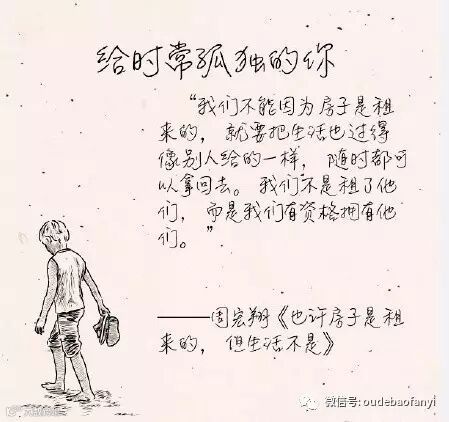 给时常孤独的你
“我们不能因为房子是租
来的，就要把生活也过得
像别人给的一样，随时都可
以拿回去。我们不是租了他
们，而是我们有资格拥有他
们。”
——周宏翔《也许房子是租
来的，但生活不是》
微信号: oudebaofanyi